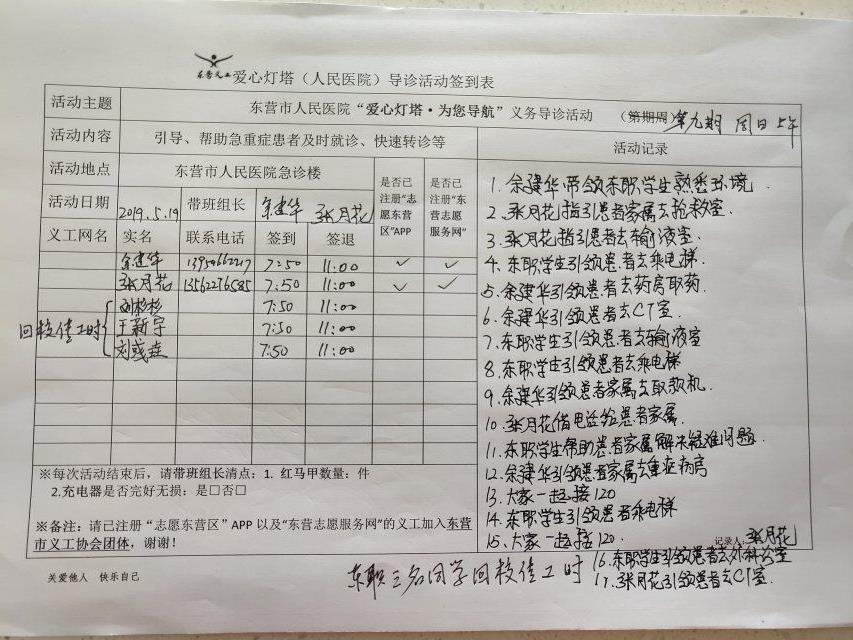 东营义工 爱心灯塔（人民医院）导诊活动签到表
活动主题 东营市人民医院“爱心灯塔·为您导航”义务导诊活动 （第期周 第九期 周日 上午
活动内容 引导、帮助急重症患者及时就诊、快速转诊等 活动记录
活动地点 东营市人民医院急诊楼 是否已注册“志愿东营区”APP 是否已注册“东营志愿服务网”
活动日期 2019.5.19 带班组长 余建华 张月花
义工网名 实名 联系电话 签到 签退
余建华 7:50 11:00 ✓ ✓
张月花 7:50 11:00 ✓ ✓
刘杉杉 7:50 11:00
回校传工时 王新宇 7:50 11:00
7:50 11:00
※每次活动结束后，请带班组长清点：1. 红马甲数量： 件
2.充电器是否完好无损：是□否□
※备注：请已注册“志愿东营区”APP 以及“东营志愿服务网”的义工加入东营
市义工协会团体，谢谢！
1. 余建华带领东职学生熟悉环境
2. 张月花指引患者家属去抢救室.
3. 张月花指引患者去输液室.
4. 东职学生引领患者去乘电梯.
5. 余建华引领患者去药房取药.
6. 余建华引领患者去CT室.
7. 东职学生引领患者去输液室
8. 东职学生引领患者去乘电梯
9. 余建华引领患者家属去取款机.
10. 张月花借电话给患者家属.
11. 东职学生帮助患者家属解决疑难问题.
12. 余建华引领患者家属去重症病房
13. 大家一起接120
14. 东职学生引领患者乘电梯
15. 大家一起接120.
记录人: 张月花
16. 东职学生引领患者去外科公室
17. 张月花引领患者去CT室.
关爱他人 快乐自己
东职三名同学回校传工时